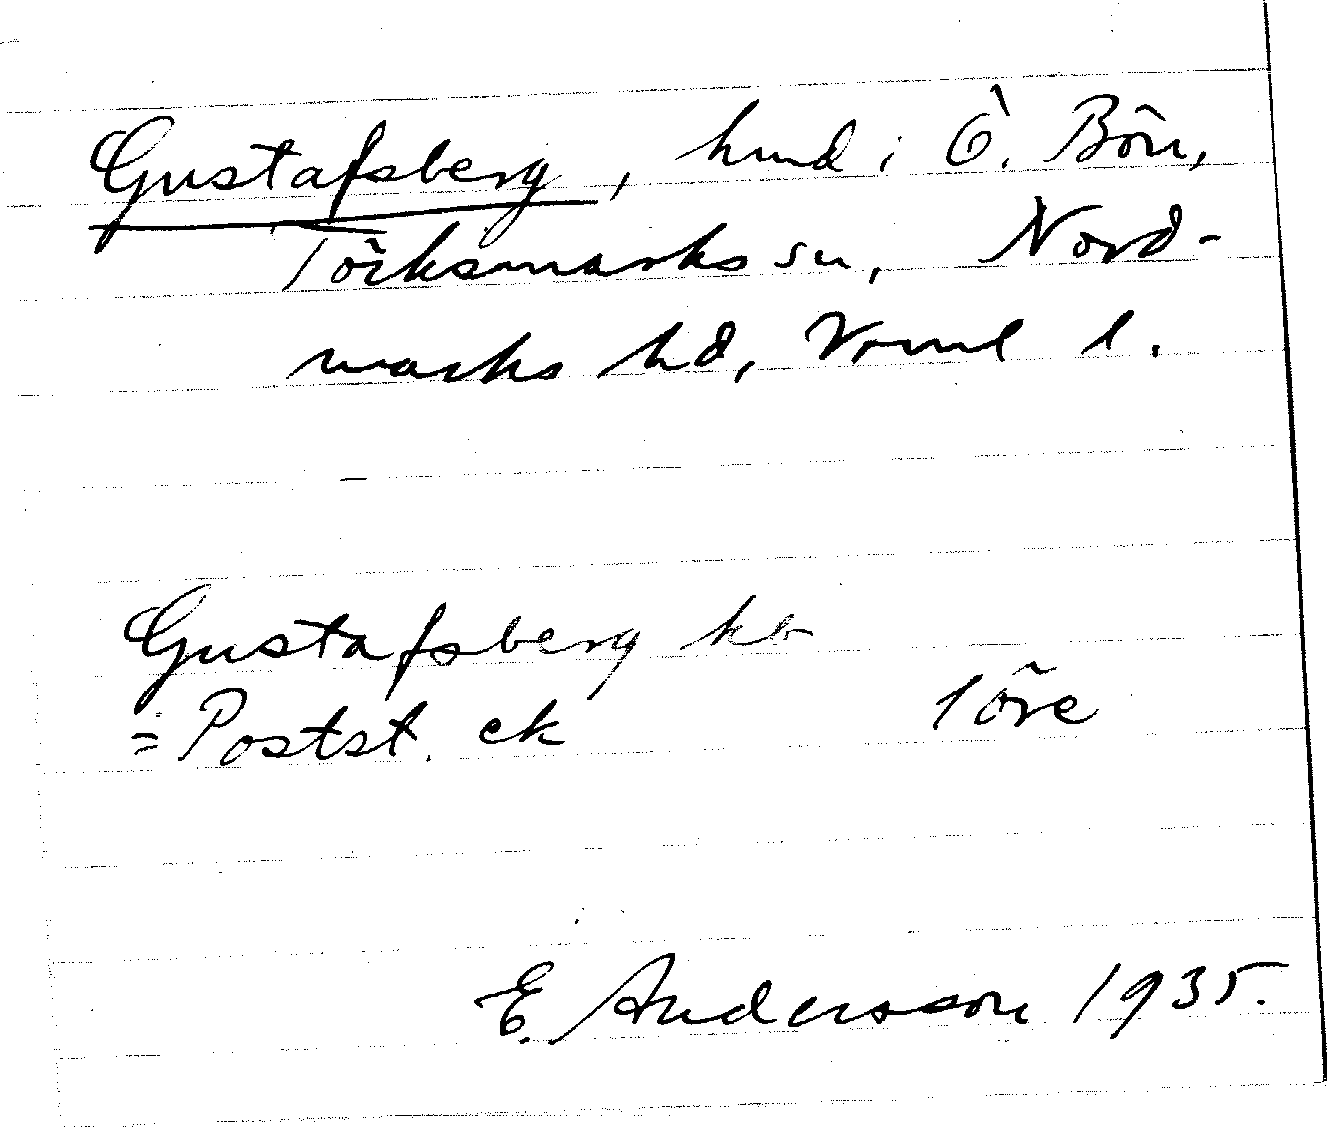 Gustafsberg, hmd i Ö. Bön,
Töcksmarks sn, Nord-
marks hd, Vrml l.
Gustafsberg kb
= Postst. ek 1 öre
E. Andersson 1935.